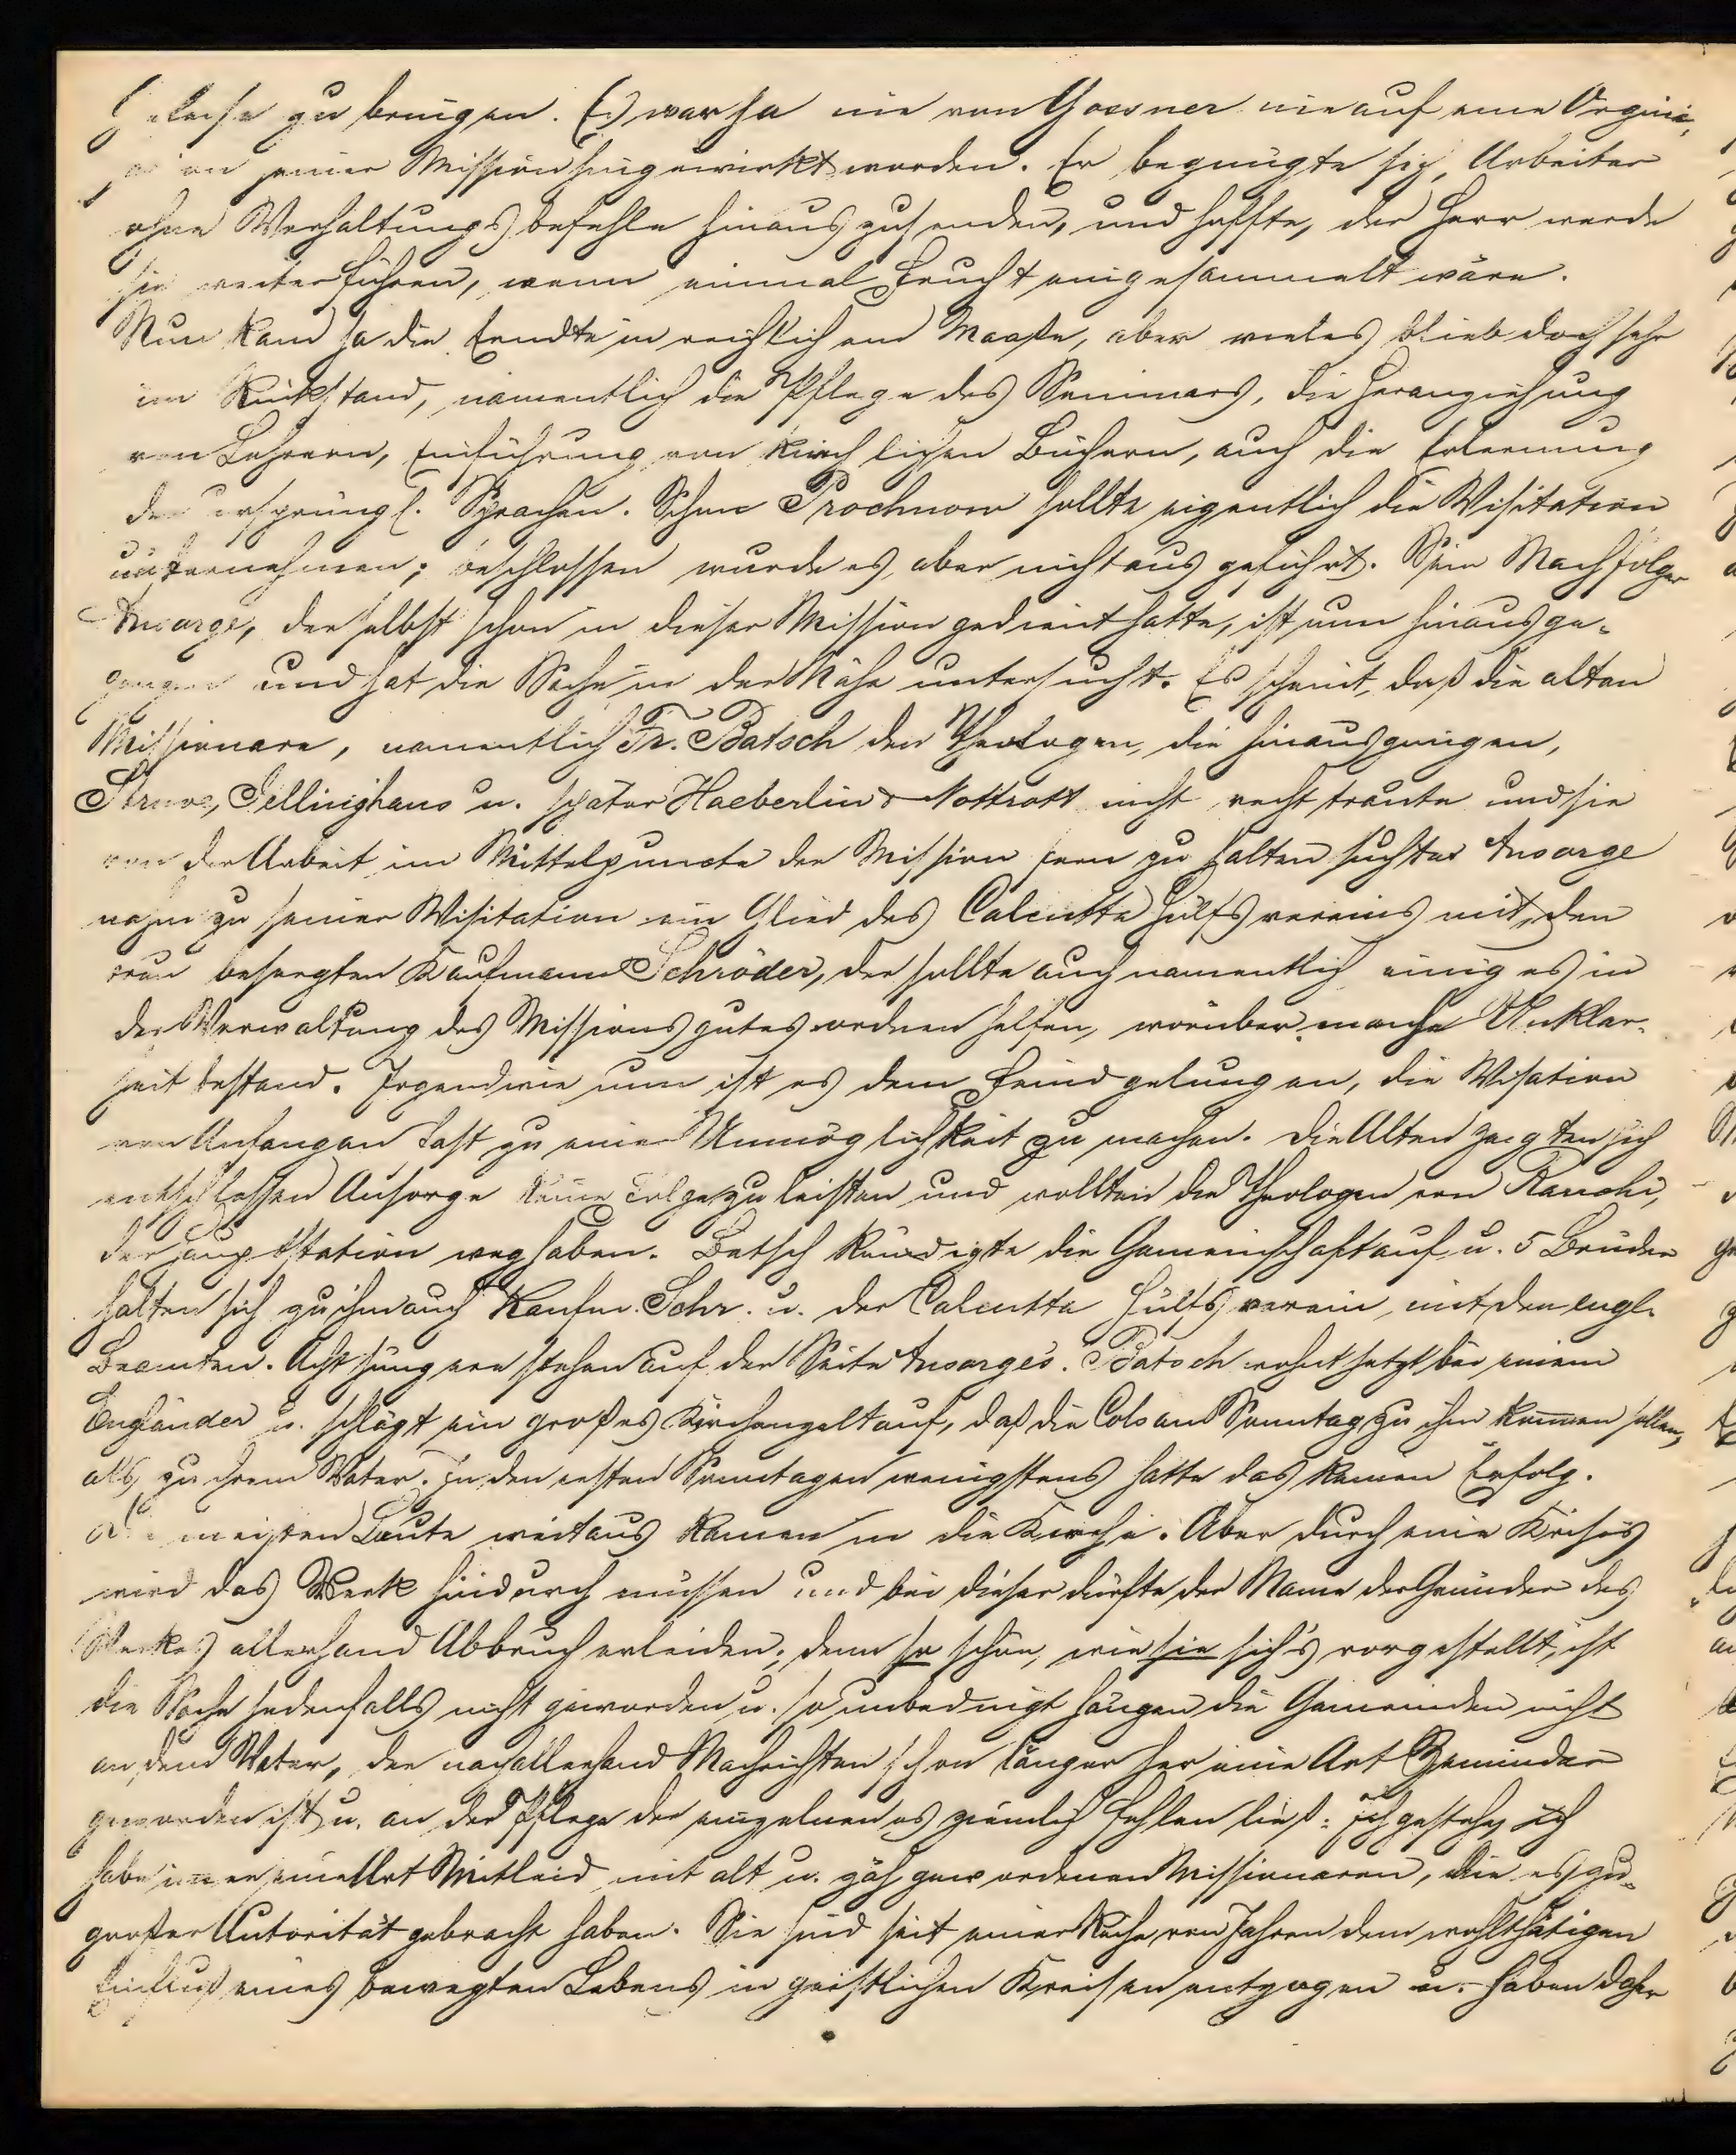 Geleise zu bringen. Es war ja nie von Gossner nie auf eine Orgini-
in seiner Mission hingewirkt worden. Er begnügte sich, Arbeiter
ohne Verhaltungsbefehle hinauszusenden, und hoffte, der Herr werde
sie weiter führen, wenn einmal Frucht eingesammelt wäre.
Nun kam ja die Erndte in reichlichem Maaße, aber vieles blieb doch sehr
im Rückstand, namentlich die Pflege des Seminars, die Heranziehung
von Lehrern, Einführung von kirchlichen Büchern, auch die Erlernung
der ursprüngl. Sprachen. Schon Prochnow sollte eigentlich die Visitation
unternehmen; beschlossen wurde es, aber nicht ausgeführt. Sein Nachfolger
Ansorge, der selbst schon in dieser Mission gedient hatte, ist nun hinausge-
gangen und hat die Sache in der Nähe untersucht. Es scheint, daß die alten
Missionare, namentlich Fr. Batsch den Theologen, die hinausgingen,
Struve, Jellinghaus u. später Haeberlin & Nottrott nicht recht traute und sie
von der Arbeit im Mittelpuncte der Mission fern zu halten suchte. Ansorge
nahm zu seiner Visitation ein Glied des Calcutta Hülfsvereins mit, den
besorgten Kaufmann Schröder, der sollte auch namentlich einiges in
der Verwaltung des Missionsgutes ordnen helfen, worüber manche Unklar-
heit bestand. Irgendwie nun ist es dem Feind gelungen, die Visation
von Anfangan fast zu einer Unmöglichkeit zu machen. Die Alten zeigten sich
entschlossen Ansorge keine Folge zu leisten und wollten die Theologen von Ranchi,
der Hauptstation weg haben. Batsch kündigte die Gemeinschaft auf u. 5 Brüder
halten sich zu ihm auch Kaufm. Schr. u. der Calcutta Hülfsverein, mit den engl.
Beamten. Acht jüngere stehen auf der Seite Ansorge's. Batsch wohnt jetzt bei einem
Engländer u. schlägt ein großes Kirchenzelt auf, daß die Cols am Sonntag zu ihm kommen sollen,
als zu ihrem Vater. In den ersten Sonntagen wenigstens hatte das keinen Erfolg.
Die meisten Leute weitaus kamen in die Kirche. Aber durch eine Krisis
wird das Werk hindurch müssen und bei dieser dürfte der Name der Gründer des
Werkes allerhand Abbruch erleiden; denn so schön, wie sie sich's vorgestellt, ist
die Sache jedenfalls nicht geworden u. so unbedingt hängen die Gemeinden nicht
an dem Vater, der nach allerhand Nachrichten schon länger her eine Art Zemindar
geworden ist u. an der Pflege der einzelnen es ziemlich fehlen ließ. Ich gestehe, ich
habe immer eine Art Mitleid mit alt u. zäh gewordenen Missionaren, die es zu
großer Autorität gebracht haben. Sie sind seit einer Reihe von Jahren dem wohlthätigen
Einfluß eines bewegten Lebens in geistlichen Kreisen entzogen u. haben daher